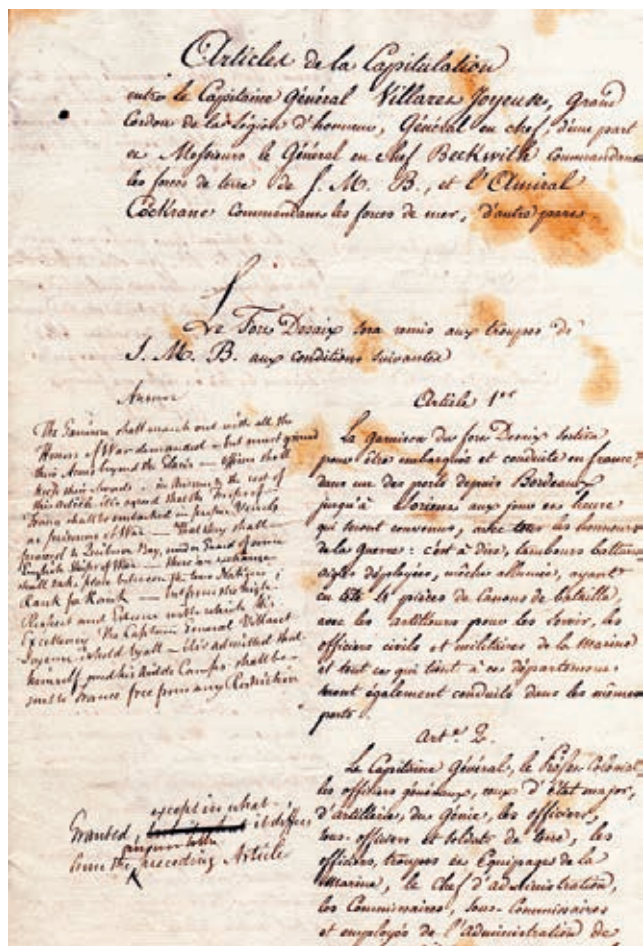 Articles de la Capitulation
entre le Capitaine Général Villaret Joyeuse, Grand
Cordon de la Légion d'honneur, Général en chef, d'une part
et Messieurs le Général en chef Beckwith commandant
les forces de terre de S. M. B., et l'Amiral
Cockrane commandant les forces de mer, d'autre part.
Le Fort Desaix sera remis aux troupes de
S. M. B. aux conditions suivantes
Answer
The Garrison shall march out with all the
Honors of War demanded – but must ground
their Arms beyond the Glacis – officers shall
keep their Swords – in Answer to the rest of
this article it is agreed that the Troops of
France shall be embarked in proper Vessels
as prisoners of War – That they shall
proceed to Quiberon Bay, under Guard of some
English Ships of War – there an exchange
shall take place between the two Nations;
Rank for Rank – but from the high
Respect and Esteem with which His
Excellency The Captain General Villaret
Joyeuse is held by all – it is admitted that
himself, and his Aids de Camps shall be
sent to France free from any Restriction
Article 1er
La garnison du fort Desaix sortira
pour être embarquée et conduite en france
dans un des ports depuis Bordeaux
jusqu'à Lorient aux jour et heure
qui seront convenus, avec tous les honneurs
de la guerre: c'est à dire, tambours battans
aigles déployées, mêches allumées, ayant
en tête 4 pièces de Canons de bataille,
avec les artilleurs pour les servir, les
officiers civils et militaires de la Marine
et tout ce qui tient à ces départemens
seront également conduits dans les mêmes
ports.
Granted, except in what
it differs
from the preceding Article
Art.e 2.
Le Capitaine Général, le Préfet Colonial
les officiers généraux, ceux d'état major,
d'artillerie, du Génie, les officiers,
sous-officiers et soldats de terre, les
officiers, troupes et Equipages de la
Marine, le Chef d'administration,
les Commissaires, sous-Commissaires
et employés de l'Administration de